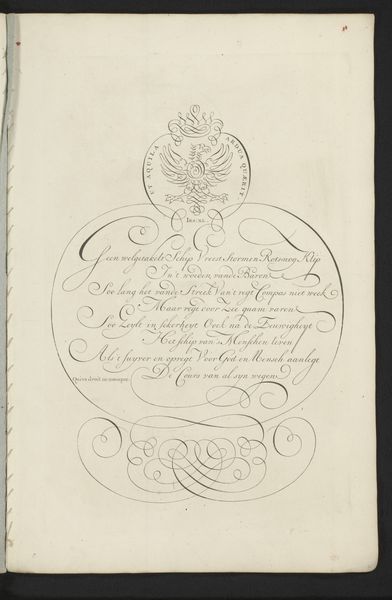 ET AQUILA ARDUA QUÆRIT
Geen welgetakelt Schip Vreest Stormen Rotsnog Klip
In't woeden vande Baren
Soo lang het vande Streek Van't regt Compas niet week
Maar regt over Zee quam varen
Soo Zeylt in sekerheyt Oock na de Eeuwigheyt
Het schip van 's Menschen leven
Als 't suyver en opregt Voor God en Mensch aanlegt
De Cours van al syn wegen